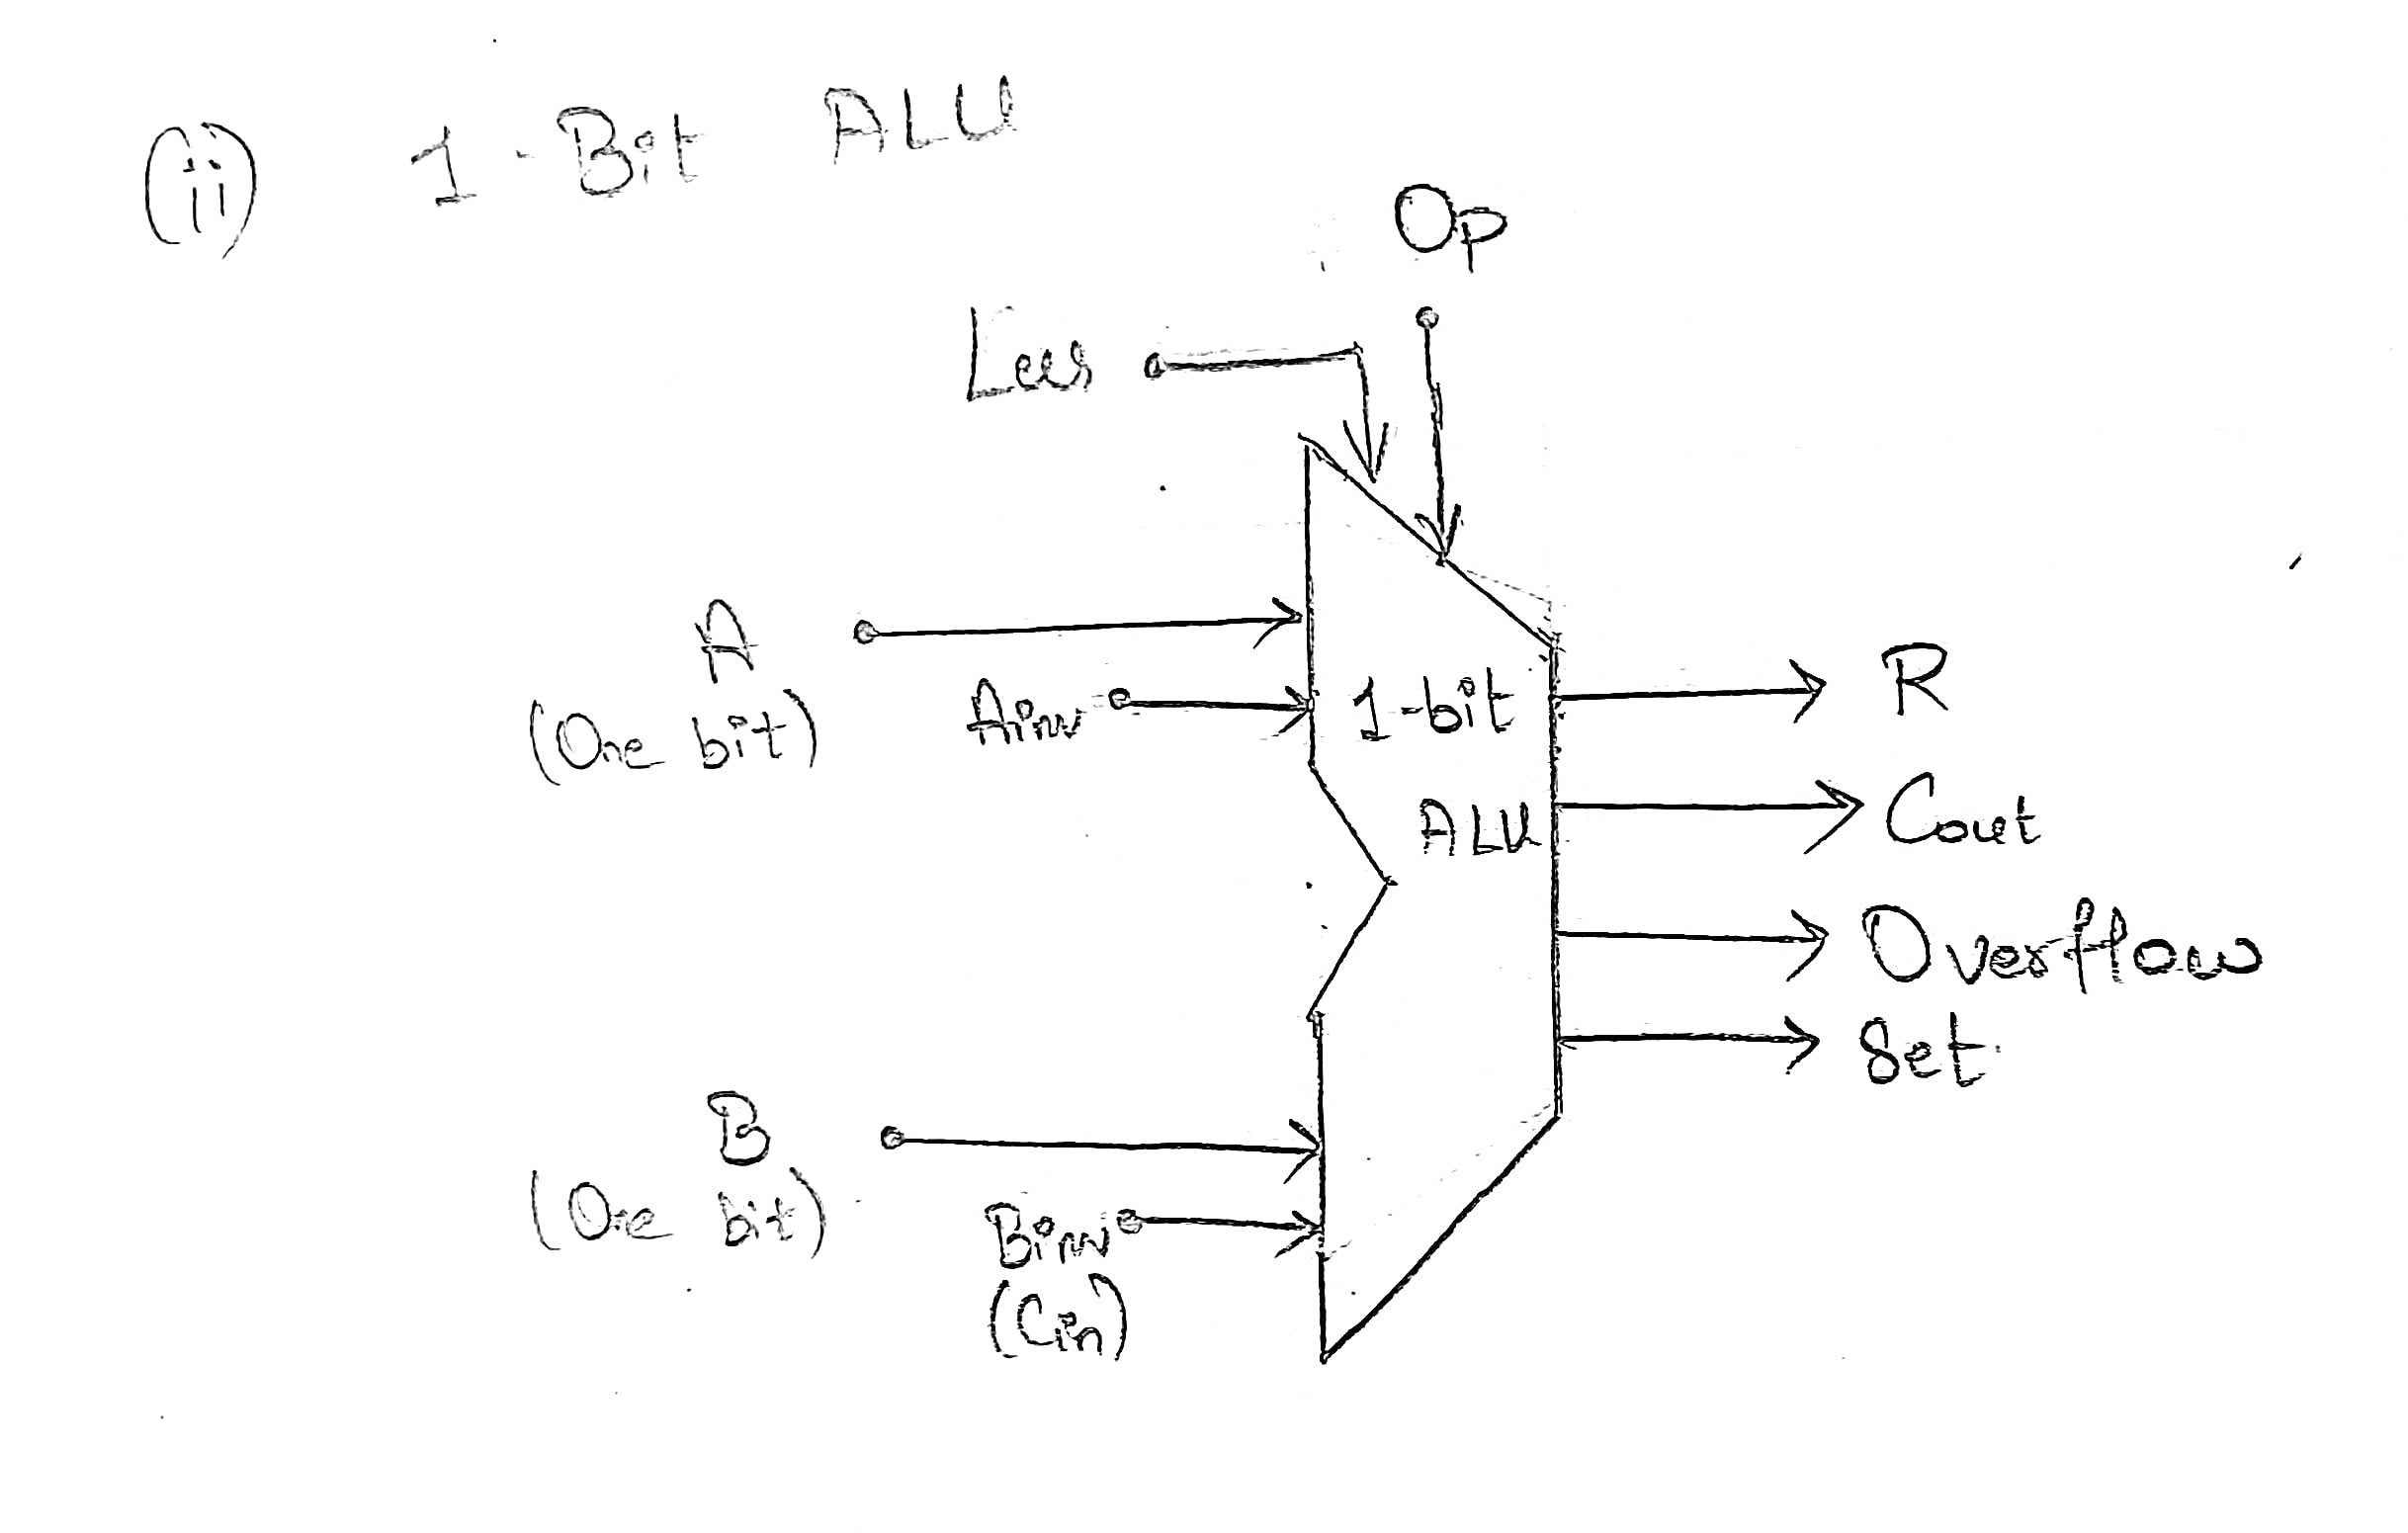 (ii) 1-Bit ALU
Op
Less
A
(One bit)
Ainv
1-bit
ALU
R
Cout
Overflow
Set
B
(One bit)
Binv
(Cin)